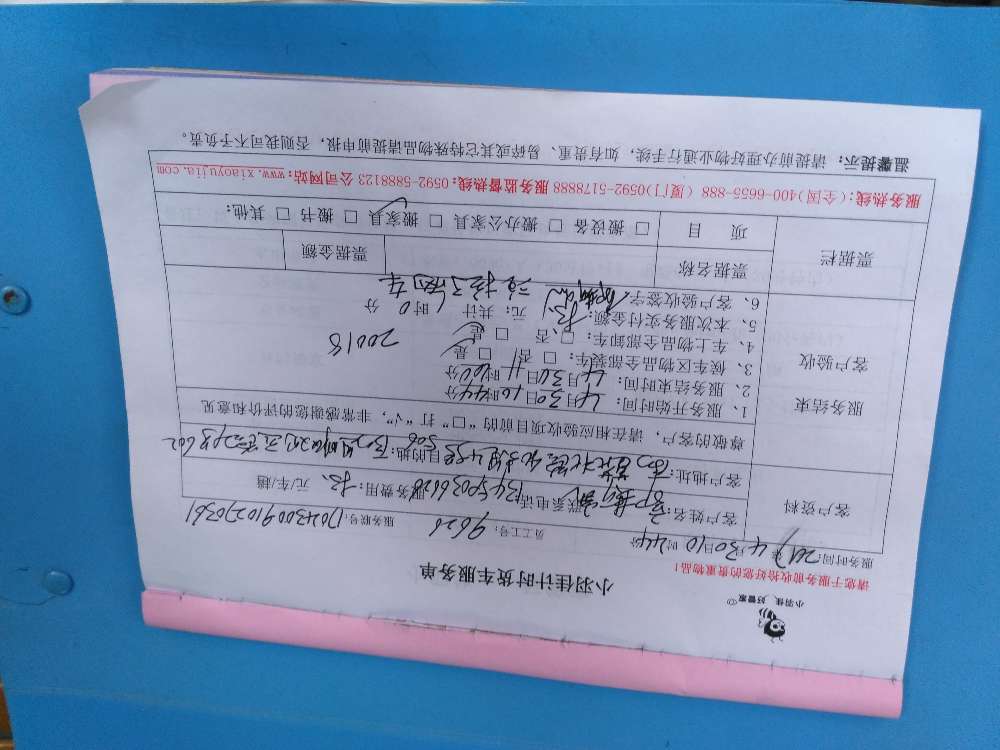 小羽佳 好管家
小羽佳计时货车服务单
请您于服务前收拾好您的贵重物品！
服务时间：2017年4月30日10时44分 员工号：9626 服务联号：
客户资料
客户姓名： 联系电话：13459036626 服务费用： 元/车/趟
客户地址： 目的地：
尊敬的客户，请在相应验收项目前的“□”打“√”，非常感谢您的评价和意见
服务结束
客户验收
1、服务开始时间：4月30日10时44分
2、服务结束时间：4月30日11时00分
3、候车区物品全部装车：□否 □是
4、车上物品全部卸车：□否 □是
20018
5、本次服务实付金额： 元；共计 时 分
6、客户验收签字
票据栏
票据名称 票据金额
项 目 □搬设备 □搬办公家具 □搬家具 □搬书 □其他：
服务热线：(全国)400-6655-888 (厦门)0592-5178888 服务监督热线：0592-5888123 公司网站：www.xiaoyujia.com
温馨提示：请提前办理好物业通行手续，如有贵重、易碎或其它特殊物品请提前申报，否则我司不予负责。